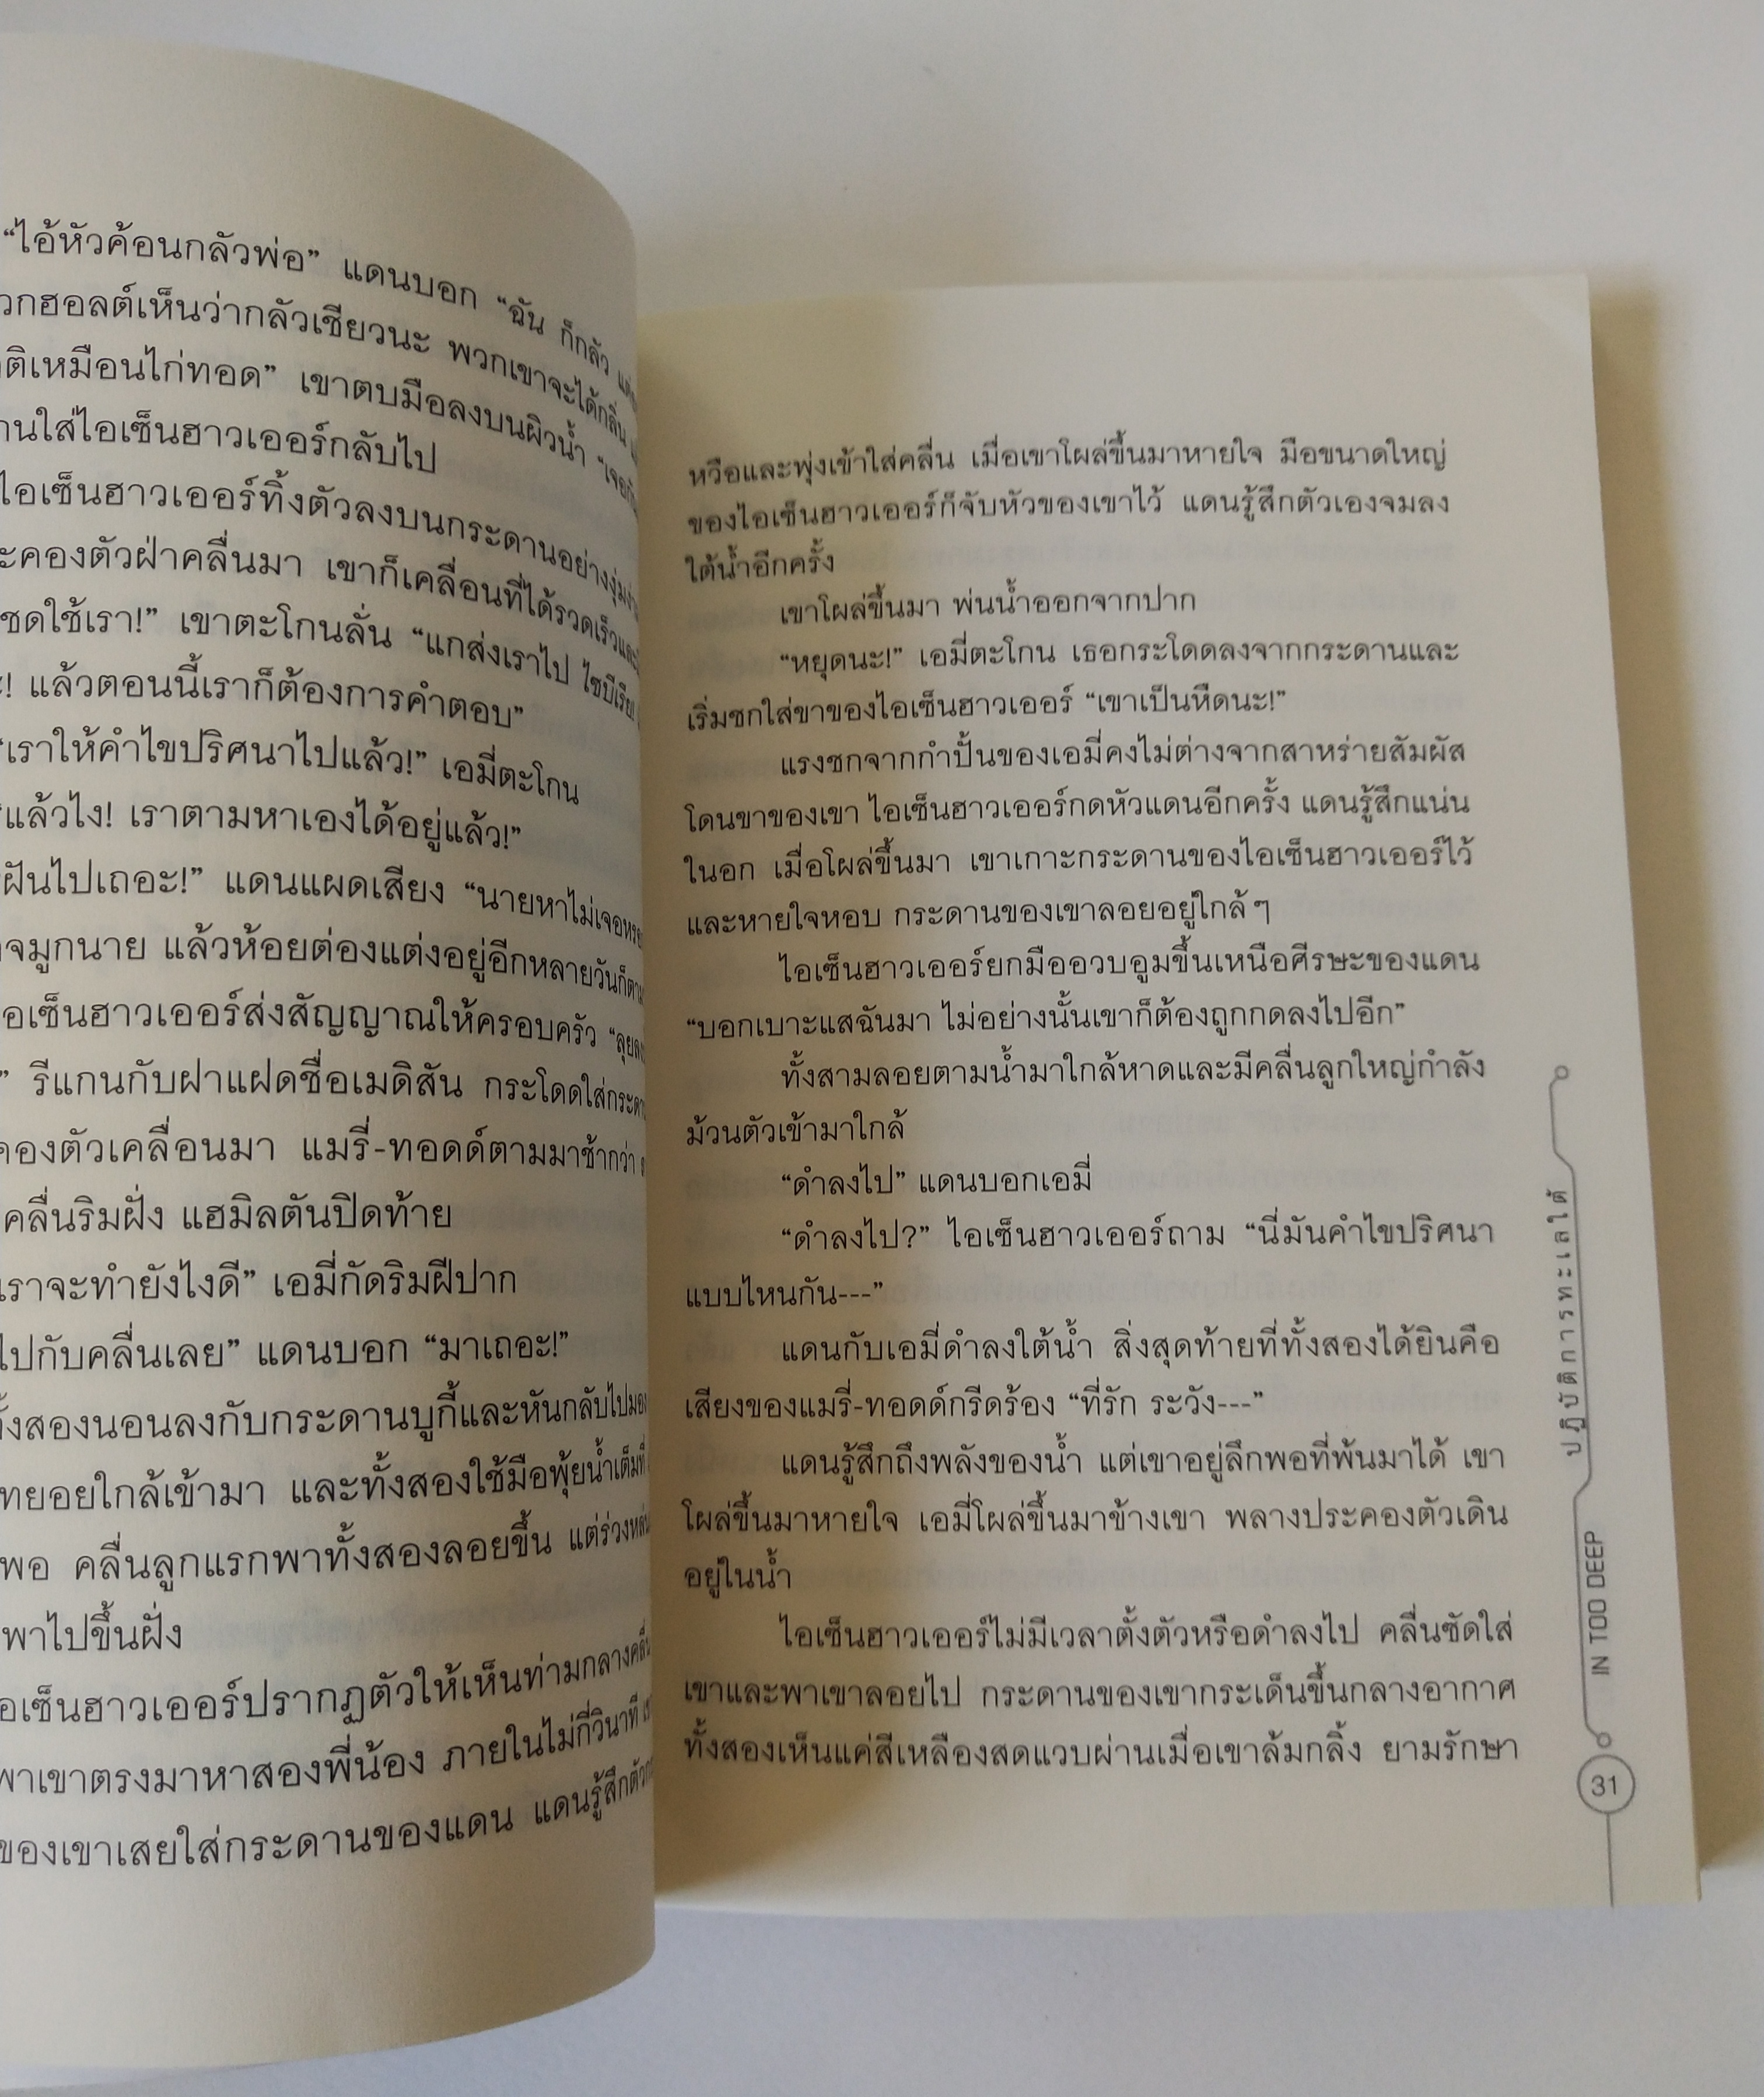 “ไอ้หัวค้อนกลัวพ่อ” แดนบอก “ฉัน ก็กลัว
วกฮอลต์เห็นว่ากลัวเชียวนะ พวกเขาจะได้กลิ่น
ติเหมือนไก่ทอด” เขาตบมือลงบนผิวน้ำ
านใส่ไอเซ็นฮาวเออร์กลับไป
ไอเซ็นฮาวเออร์ทิ้งตัวลงบนกระดานอย่าง
ะคองตัวฝ่าคลื่นมา เขาก็เคลื่อนที่ได้รวดเร็ว
ชดใช้เรา!” เขาตะโกนลั่น “แกส่งเราไป ไซบีเรีย
! แล้วตอนนี้เราก็ต้องการคำตอบ”
“เราให้คำไขปริศนาไปแล้ว!” เอมี่ตะโกน
“แล้วไง! เราตามหาเองได้อยู่แล้ว!”
ฝันไปเถอะ!” แดนแผดเสียง “นายหาไม่เจอหรอก
จมูกนาย แล้วห้อยต่องแต่งอยู่อีกหลายวันก็ตาม
อเซ็นฮาวเออร์ส่งสัญญาณให้ครอบครัว
” รีแกนกับฝาแฝดชื่อเมดิสัน กระโดดใส่
คองตัวเคลื่อนมา แมรี่-ทอดด์ตามมาช้ากว่า
คลื่นริมฝั่ง แฮมิลตันปิดท้าย
เราจะทำยังไงดี” เอมี่กัดริมฝีปาก
ไปกับคลื่นเลย” แดนบอก “มาเถอะ!”
ั้งสองนอนลงกับกระดานบูกี้และหันกลับไปมอง
ทยอยใกล้เข้ามา และทั้งสองใช้มือพุ้ยน้ำเต็มที่
พอ คลื่นลูกแรกพาทั้งสองลอยขึ้น แต่ร่วง
พาไปขึ้นฝั่ง
อเซ็นฮาวเออร์ปรากฏตัวให้เห็นท่ามกลางคลื่น
พาเขาตรงมาหาสองพี่น้อง ภายในไม่กี่วินาที
ของเขาเสยใส่กระดานของแดน แดนรู้สึก
หวือและพุ่งเข้าใส่คลื่น เมื่อเขาโผล่ขึ้นมาหายใจ มือขนาดใหญ่
ของไอเซ็นฮาวเออร์ก็จับหัวของเขาไว้ แดนรู้สึกตัวเองจมลง
ใต้น้ำอีกครั้ง
เขาโผล่ขึ้นมา พ่นน้ำออกจากปาก
“หยุดนะ!” เอมี่ตะโกน เธอกระโดดลงจากกระดานและ
เริ่มชกใส่ขาของไอเซ็นฮาวเออร์ “เขาเป็นหืดนะ!”
แรงชกจากกำปั้นของเอมี่คงไม่ต่างจากสาหร่ายสัมผัส
โดนขาของเขา ไอเซ็นฮาวเออร์กดหัวแดนอีกครั้ง แดนรู้สึกแน่น
ในอก เมื่อโผล่ขึ้นมา เขาเกาะกระดานของไอเซ็นฮาวเออร์ไว้
และหายใจหอบ กระดานของเขาลอยอยู่ใกล้ๆ
ไอเซ็นฮาวเออร์ยกมืออวบอูมขึ้นเหนือศีรษะของแดน
“บอกเบาะแสฉันมา ไม่อย่างนั้นเขาก็ต้องถูกกดลงไปอีก”
ทั้งสามลอยตามน้ำมาใกล้หาดและมีคลื่นลูกใหญ่กำลัง
ม้วนตัวเข้ามาใกล้
“ดำลงไป” แดนบอกเอมี่
“ดำลงไป?” ไอเซ็นฮาวเออร์ถาม “นี่มันคำไขปริศนา
แบบไหนกัน---”
แดนกับเอมี่ดำลงใต้น้ำ สิ่งสุดท้ายที่ทั้งสองได้ยินคือ
เสียงของแมรี่-ทอดด์กรีดร้อง “ที่รัก ระวัง---”
แดนรู้สึกถึงพลังของน้ำ แต่เขาอยู่ลึกพอที่พ้นมาได้ เขา
โผล่ขึ้นมาหายใจ เอมี่โผล่ขึ้นมาข้างเขา พลางประคองตัวเดิน
อยู่ในน้ำ
ไอเซ็นฮาวเออร์ไม่มีเวลาตั้งตัวหรือดำลงไป คลื่นซัดใส่
เขาและพาเขาลอยไป กระดานของเขากระเด็นขึ้นกลางอากาศ
ทั้งสองเห็นแค่สีเหลืองสดแวบผ่านเมื่อเขาล้มกลิ้ง ยามรักษา
ปฏิบัติการทะเลใต้
IN TOO DEEP
31